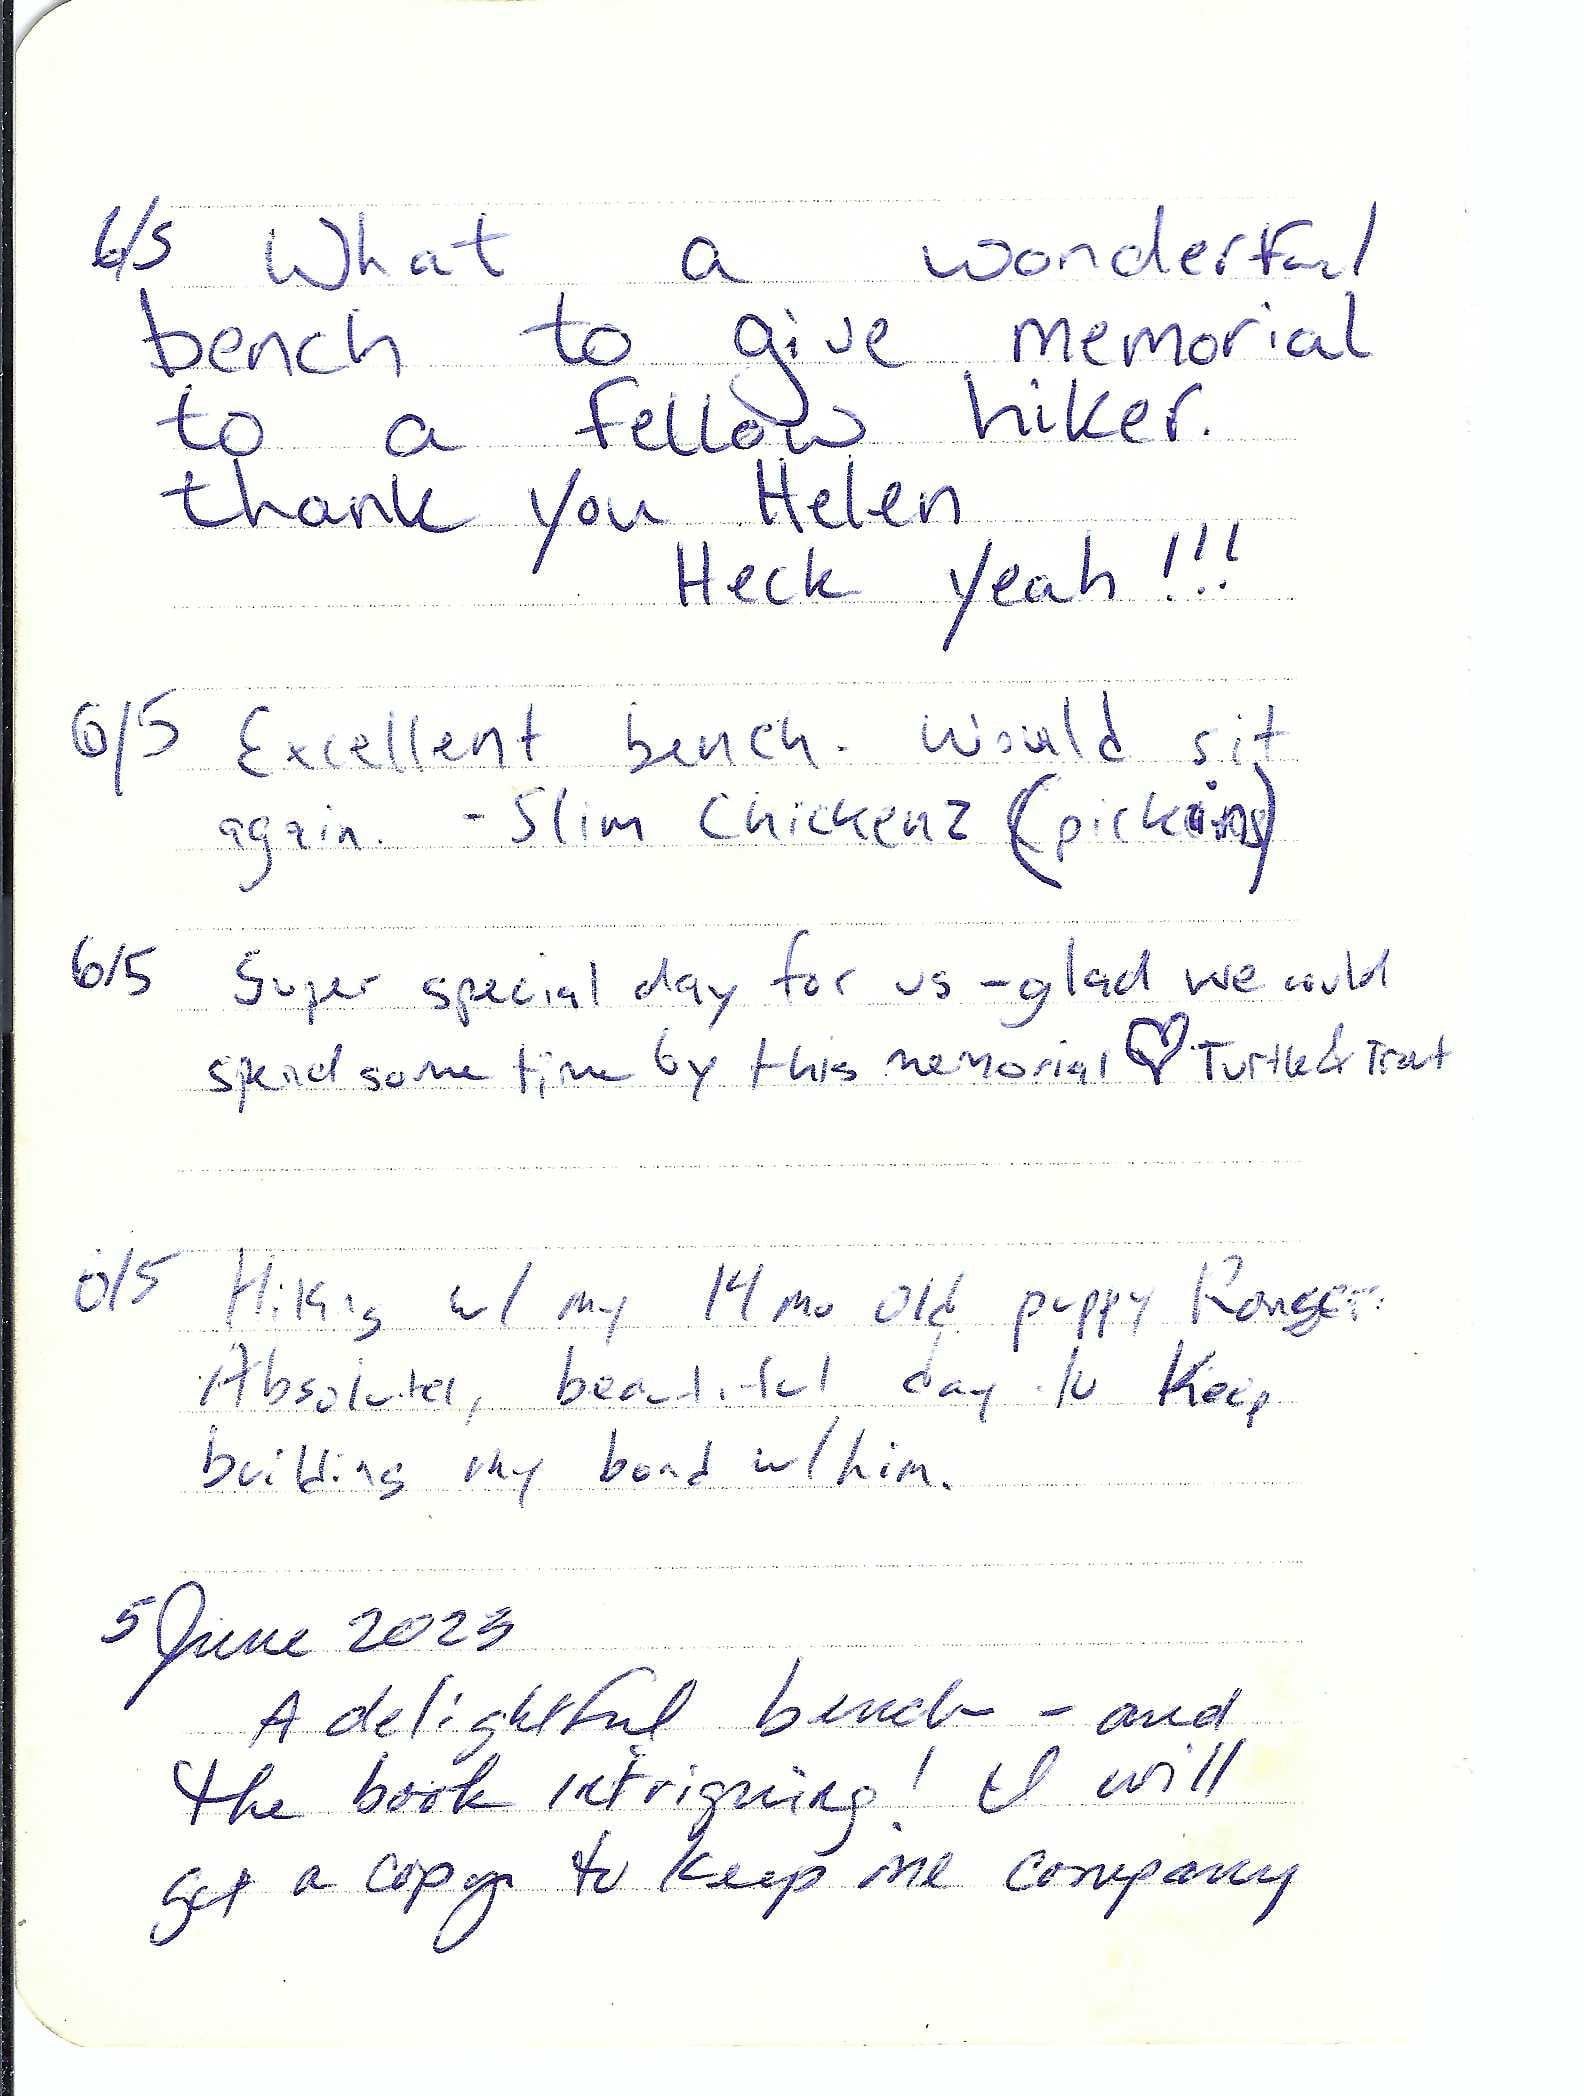 6/5 What a wonderful
bench to give memorial
to a fellow hiker.
thank you Helen
Heck yeah!!!
6/5 Excellent bench. Would sit
again. - Slim Chickenz (pickins)
6/5 Super special day for us - glad we could
spend some time by this memorial ♡ Turtle & Trout
6/5 Hiking w/ my 14 mo old puppy Ranger.
Absolutely beautiful day to keep
building my bond w/ him.
5 June 2023
A delightful bench - and
the book intriguing! I will
get a copy to keep me company